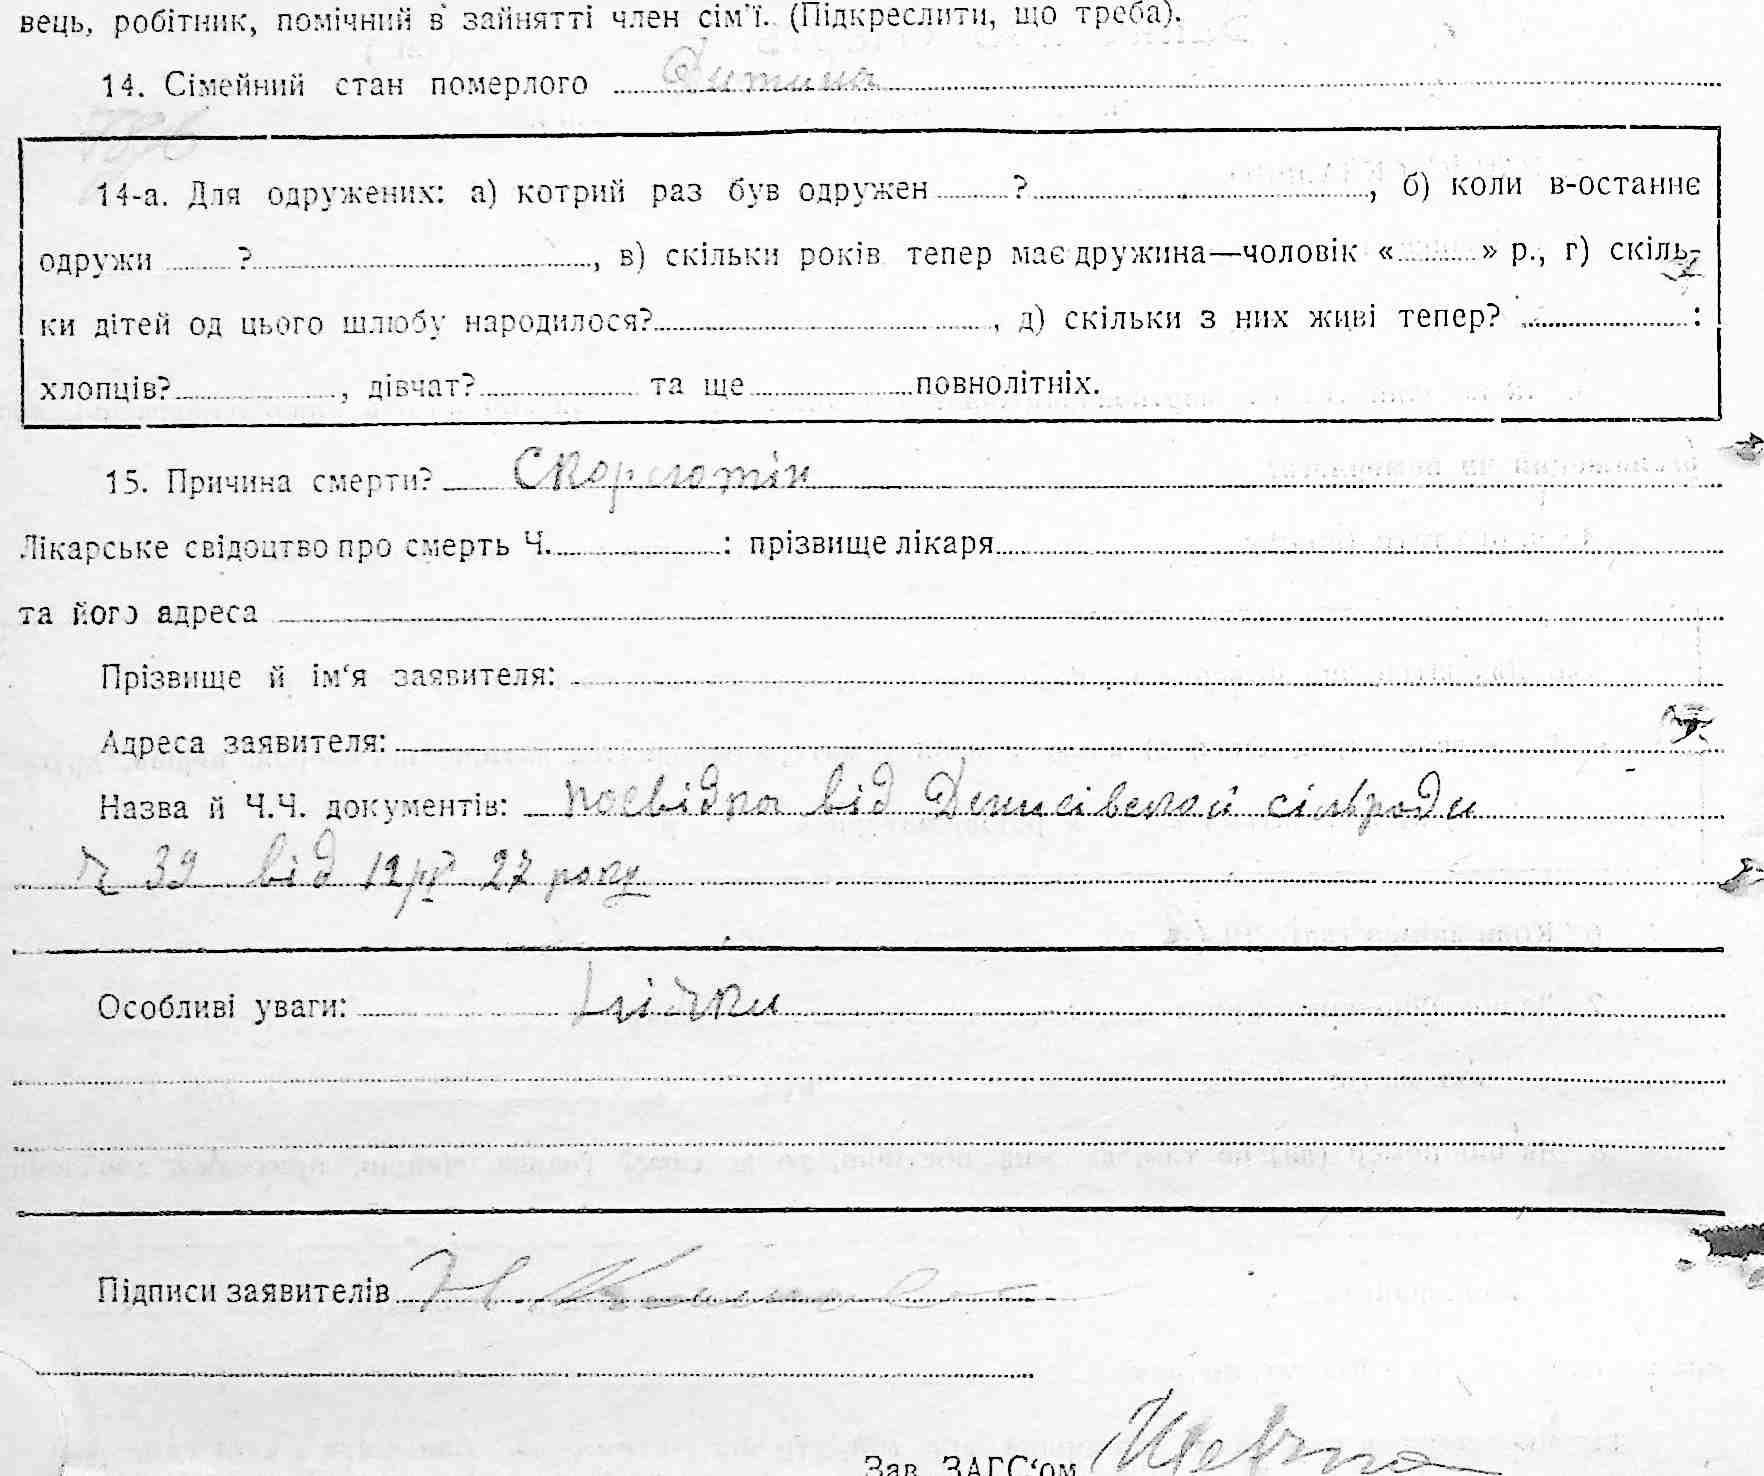 вець, робітник, помічний в зайнятті член сім'ї. (Підкреслити, що треба).
14. Сімейний стан померлого Дитина
14-а. Для одружених: а) котрий раз був одружен ? , б) коли в-останнє
одружи ? , в) скільки років тепер має дружина—чоловік « » р., г) скіль-
ки дітей од цього шлюбу народилося? , д) скільки з них живі тепер? :
хлопців? , дівчат? та ще повнолітніх.
15. Причина смерти? Скорлотін
Лікарське свідоцтво про смерть Ч. : прізвище лікаря
та його адреса
Прізвище й ім'я заявителя:
Адреса заявителя:
Назва й Ч.Ч. документів: посвідка від сільради
ч 39 від 27 року
Особливі уваги:
Підписи заявителів
Зав. ЗАГС'ом